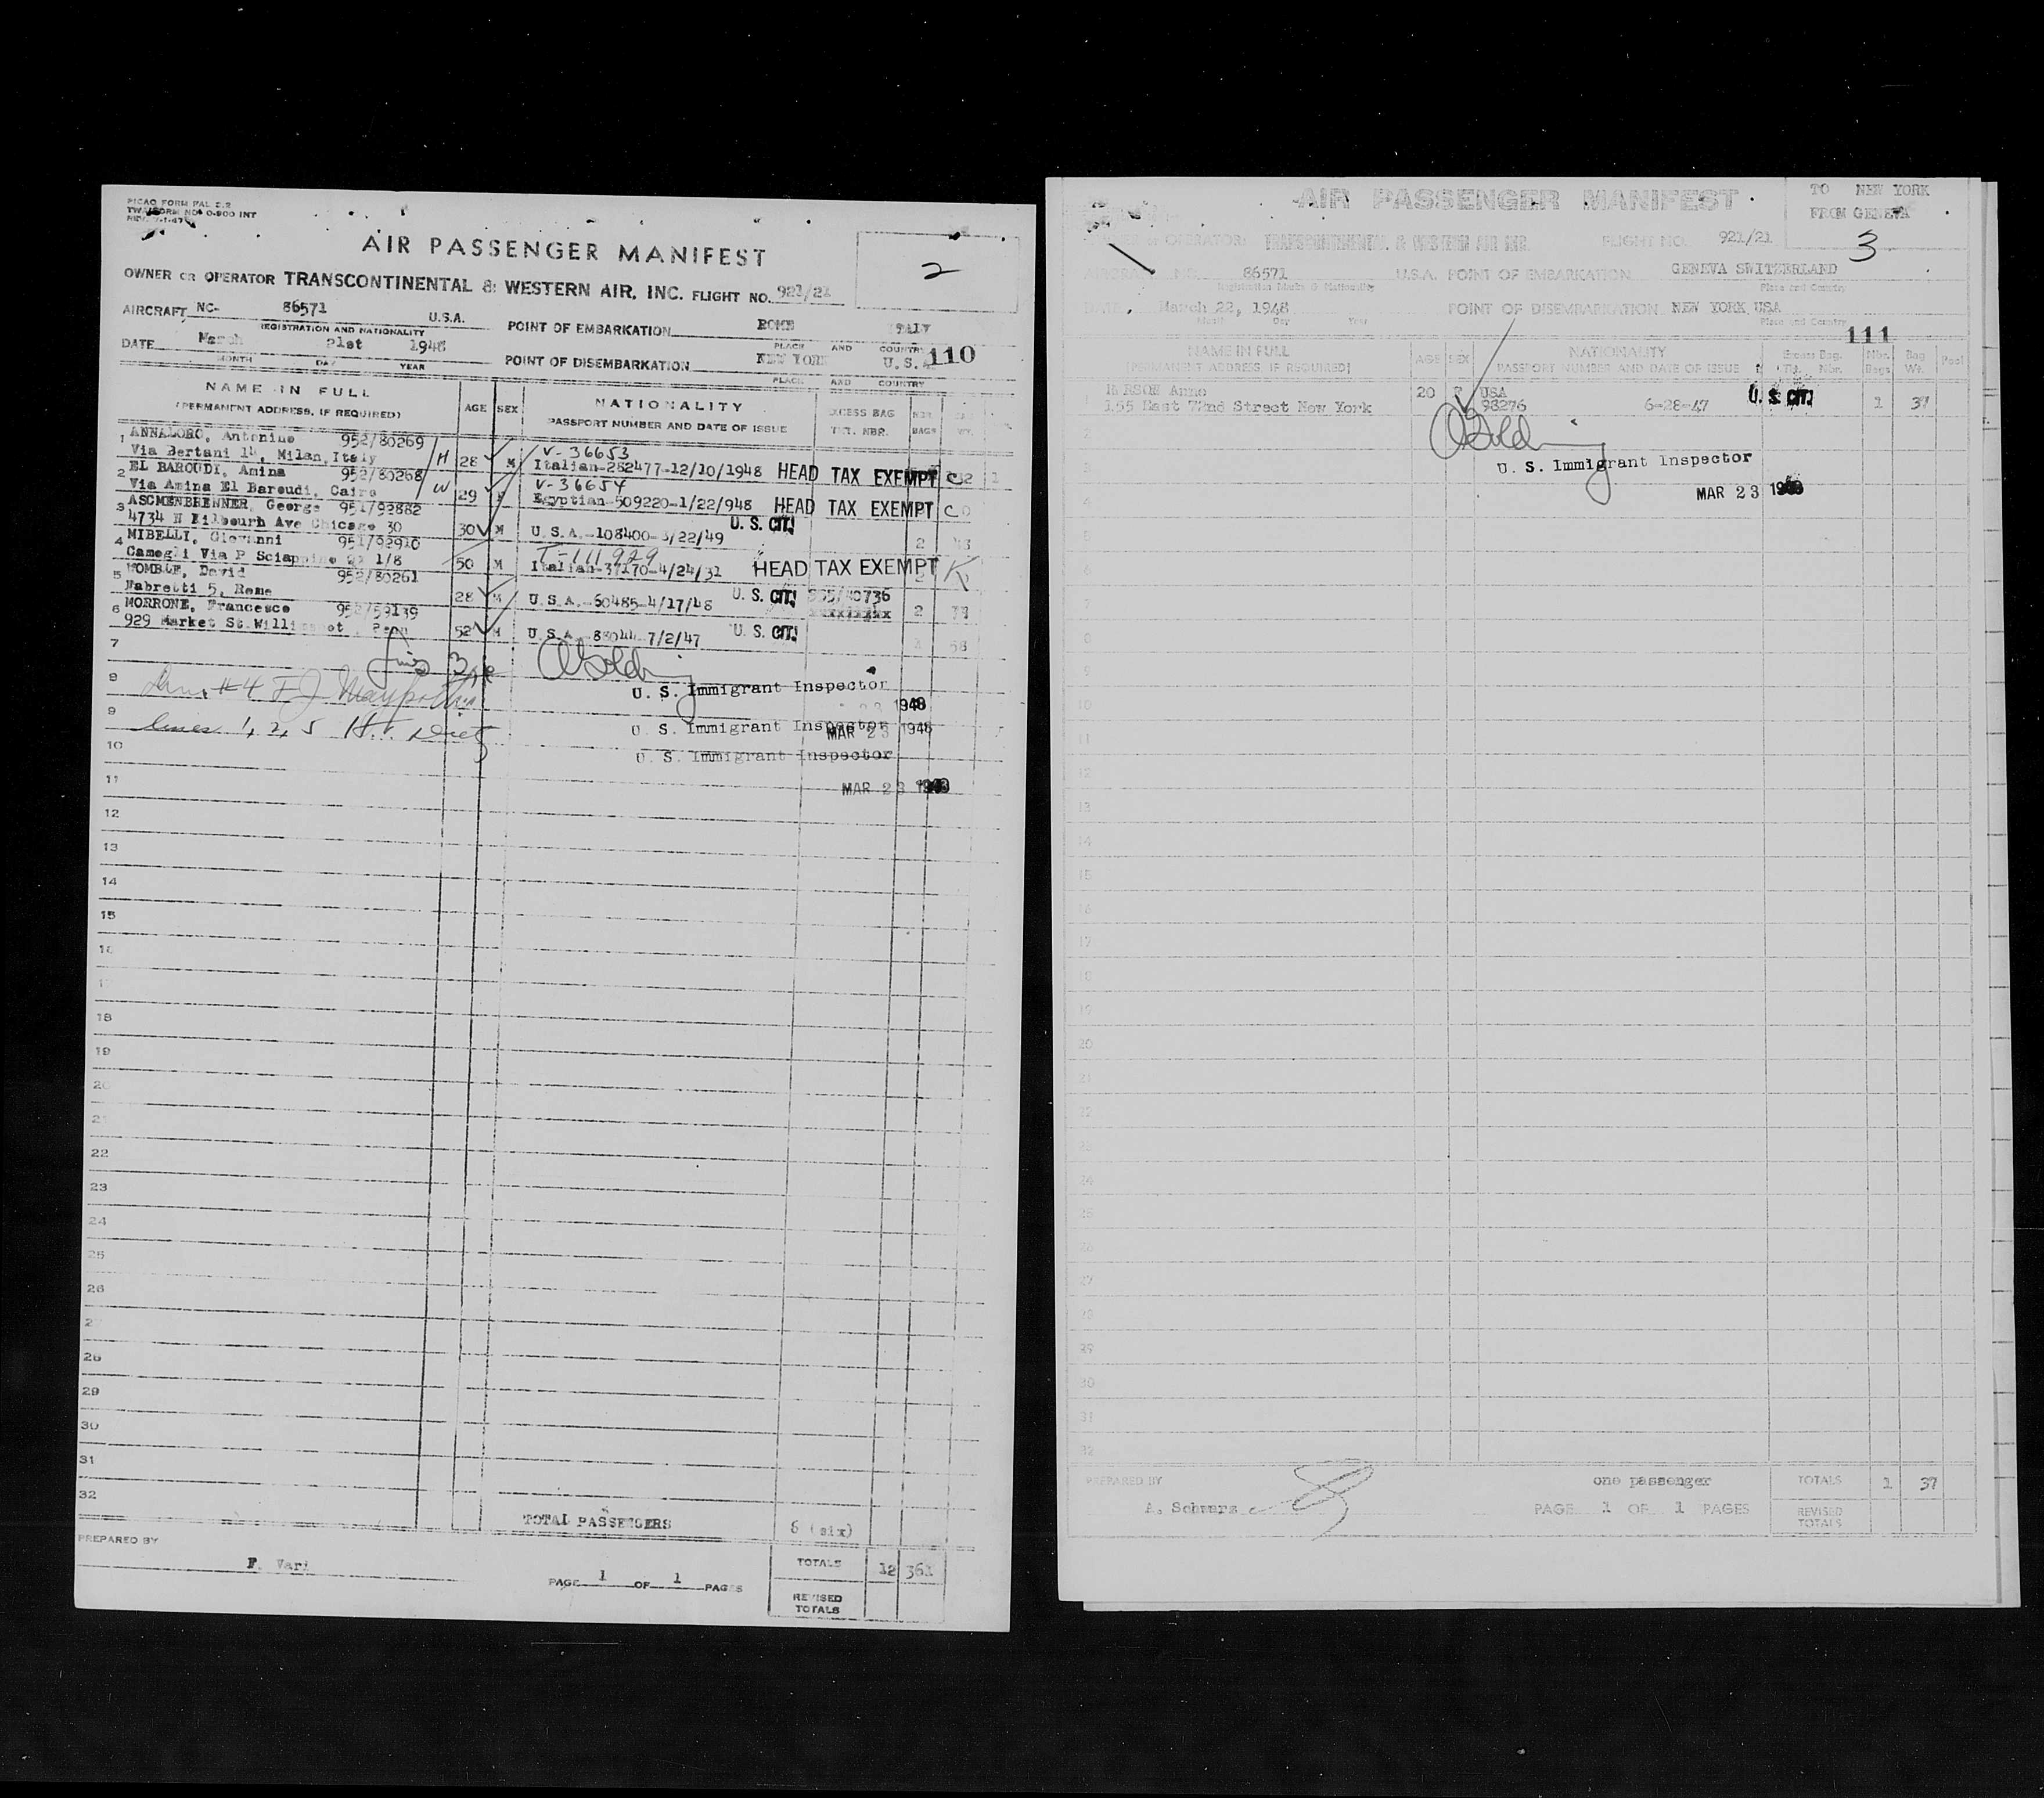 PICAO FORM PAL 2.2
TWA FORM NO. O-900 INT
AIR PASSENGER MANIFEST
2
OWNER OR OPERATOR TRANSCONTINENTAL & WESTERN AIR, INC. FLIGHT NO. 921/21
AIRCRAFT NC- 86571 U.S.A. POINT OF EMBARKATION ROME ITALY
REGISTRATION AND NATIONALITY PLACE AND COUNTRY
DATE March 21st 1948 POINT OF DISEMBARKATION NEW YORK U.S.A 110
MONTH DAY YEAR PLACE AND COUNTRY
NAME IN FULL AGE SEX NATIONALITY EXCESS BAG NBR.
(PERMANENT ADDRESS, IF REQUIRED) PASSPORT NUMBER AND DATE OF ISSUE TKT. NBR. BAGS WT.
1 ANNALORO, Antonino 952/80269 H V-36653
Via Bertani 14, Milan, Italy 28 M Italian-282477-12/10/1948 HEAD TAX EXEMPT C
2 EL BAROUDI, Amina 952/80268 W V-36654
Via Amina El Baroudi, Cairo 29 F Egyptian-509220-1/22/948 HEAD TAX EXEMPT C
3 ASCHENBRENNER, George 951/92882 U. S. CIT.
4734 N Kilbourn Ave Chicago 30 30 M U.S.A.-108400-3/22/49 2
4 MIBELLI, Giovanni 951/92910 T-111929
Camogli Via P Sciappino 1/8 50 M Italian-37170-4/24/31 HEAD TAX EXEMPT K
5 David 952/80261 U. S. CIT.
Nabretti 5, Rome 28 M U.S.A.-60485-4/17/48 2
6 MORRONE, Francesco 952/59139
929 Market St. 52 M U.S.A. 7/2/47 U. S. CIT. 58
7
8 U. S. Immigrant Inspector
1948
9 Lines 1, 2, 5 U. S. Immigrant Inspector
MAR 23 1948
10 U. S. Immigrant Inspector
11 MAR 23
12
13
14
15
16
18
19
20
21
22
23
24
25
26
28
29
30
31
32
TOTAL PASSENGERS 6 (six)
PREPARED BY F. Vari PAGE 1 OF 1 PAGES TOTALS 12 361
REVISED TOTALS
AIR PASSENGER MANIFEST
TO NEW YORK
FROM GENEVA
3
OPERATOR: TRANSCONTINENTAL & WESTERN AIR INC. FLIGHT NO. 921/21
86571 U.S.A. POINT OF EMBARKATION GENEVA SWITZERLAND
Registration Marks & Nationality Place and Country
DATE March 22, 1948 POINT OF DISEMBARKATION NEW YORK USA
Month Day Year Place and Country
111
NAME IN FULL AGE SEX NATIONALITY Excess Bag. Nbr. Bag Pool
(PERMANENT ADDRESS, IF REQUIRED) PASSPORT NUMBER AND DATE OF ISSUE Tkt. Nbr. Bags Wt.
1 Anne 20 F USA U. S. CIT.
155 East 72nd Street New York 98276 6-28-47 1 37
2
3 U. S. Immigrant Inspector
MAR 23
4
5
6
7
8
9
10
11
12
13
14
15
16
17
18
19
20
21
22
23
24
25
26
27
28
29
30
31
32
PREPARED BY one passenger TOTALS 1 37
A. Schwarz PAGE 1 OF 1 PAGES REVISED TOTALS